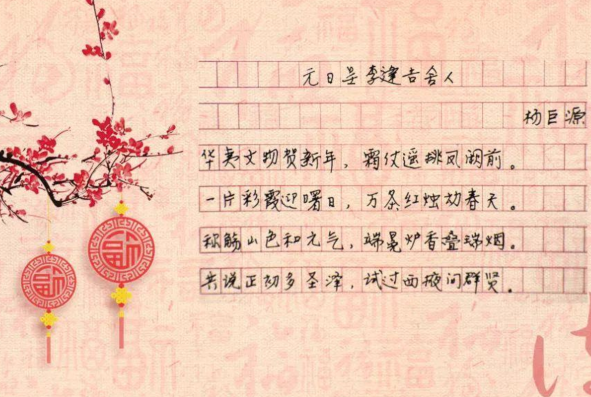 元日呈李逢吉舍人
杨巨源
华夷文物贺新年，霜仗遥排凤阙前。
一片彩霞迎曙日，万条红烛动春天。
称觞山色和元气，端冕炉香叠瑞烟。
共说正初多圣泽，试过西掖问群贤。
福
福